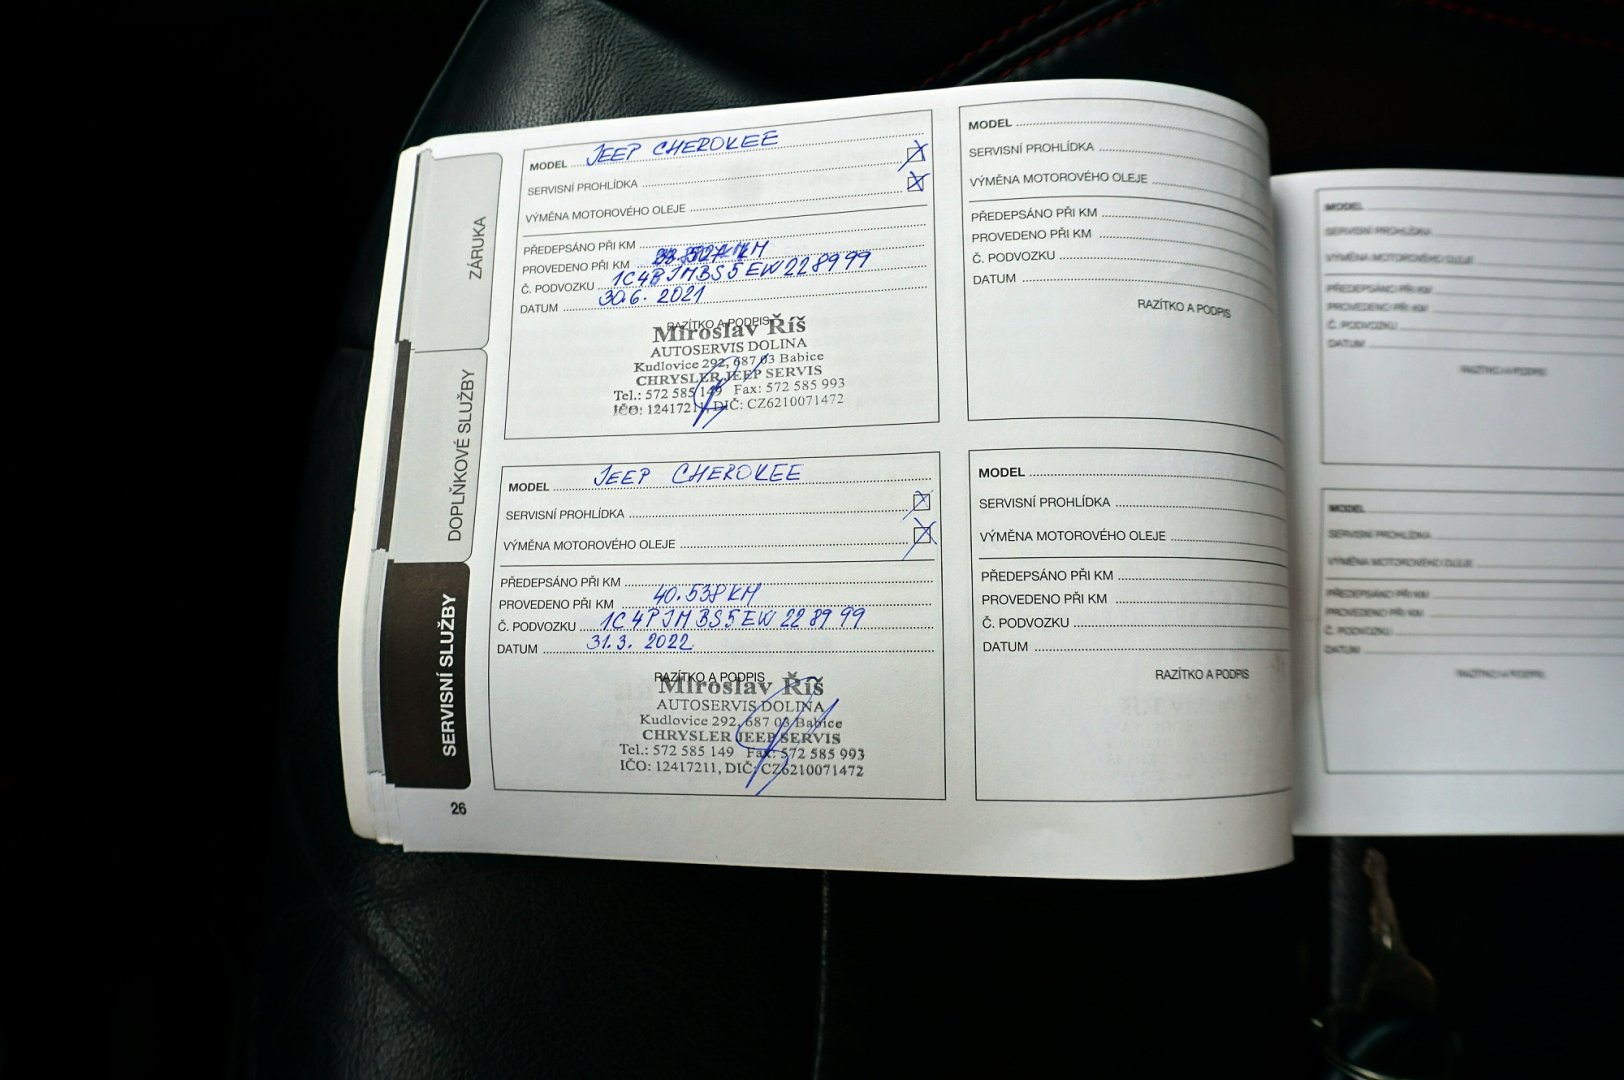 ZÁRUKA
DOPLŇKOVÉ SLUŽBY
SERVISNÍ SLUŽBY
MODEL JEEP CHEROKEE
SERVISNÍ PROHLÍDKA
VÝMĚNA MOTOROVÉHO OLEJE
PŘEDEPSÁNO PŘI KM
PROVEDENO PŘI KM KM
Č. PODVOZKU 1C4PJMBS5EW228999
DATUM 30.6. 2021
RAZÍTKO A PODPIS
Miroslav Říš
AUTOSERVIS DOLINA
Kudlovice 292, 687 03 Babice
CHRYSLER JEEP SERVIS
Tel.: 572 585 149 Fax: 572 585 993
IČO: 12417211, DIČ: CZ6210071472
MODEL JEEP CHEROKEE
SERVISNÍ PROHLÍDKA
VÝMĚNA MOTOROVÉHO OLEJE
PŘEDEPSÁNO PŘI KM
PROVEDENO PŘI KM 40.538 KM
Č. PODVOZKU 1C4PJMBS5EW228999
DATUM 31.3. 2022
RAZÍTKO A PODPIS
Miroslav Říš
AUTOSERVIS DOLINA
Kudlovice 292, 687 03 Babice
CHRYSLER JEEP SERVIS
Tel.: 572 585 149 Fax: 572 585 993
IČO: 12417211, DIČ: CZ6210071472
26
MODEL
SERVISNÍ PROHLÍDKA
VÝMĚNA MOTOROVÉHO OLEJE
PŘEDEPSÁNO PŘI KM
PROVEDENO PŘI KM
Č. PODVOZKU
DATUM
RAZÍTKO A PODPIS
MODEL
SERVISNÍ PROHLÍDKA
VÝMĚNA MOTOROVÉHO OLEJE
PŘEDEPSÁNO PŘI KM
PROVEDENO PŘI KM
Č. PODVOZKU
DATUM
RAZÍTKO A PODPIS
MODEL
SERVISNÍ PROHLÍDKA
VÝMĚNA MOTOROVÉHO OLEJE
PŘEDEPSÁNO PŘI KM
PROVEDENO PŘI KM
Č. PODVOZKU
DATUM
RAZÍTKO A PODPIS
MODEL
SERVISNÍ PROHLÍDKA
VÝMĚNA MOTOROVÉHO OLEJE
PŘEDEPSÁNO PŘI KM
PROVEDENO PŘI KM
Č. PODVOZKU
DATUM
RAZÍTKO A PODPIS